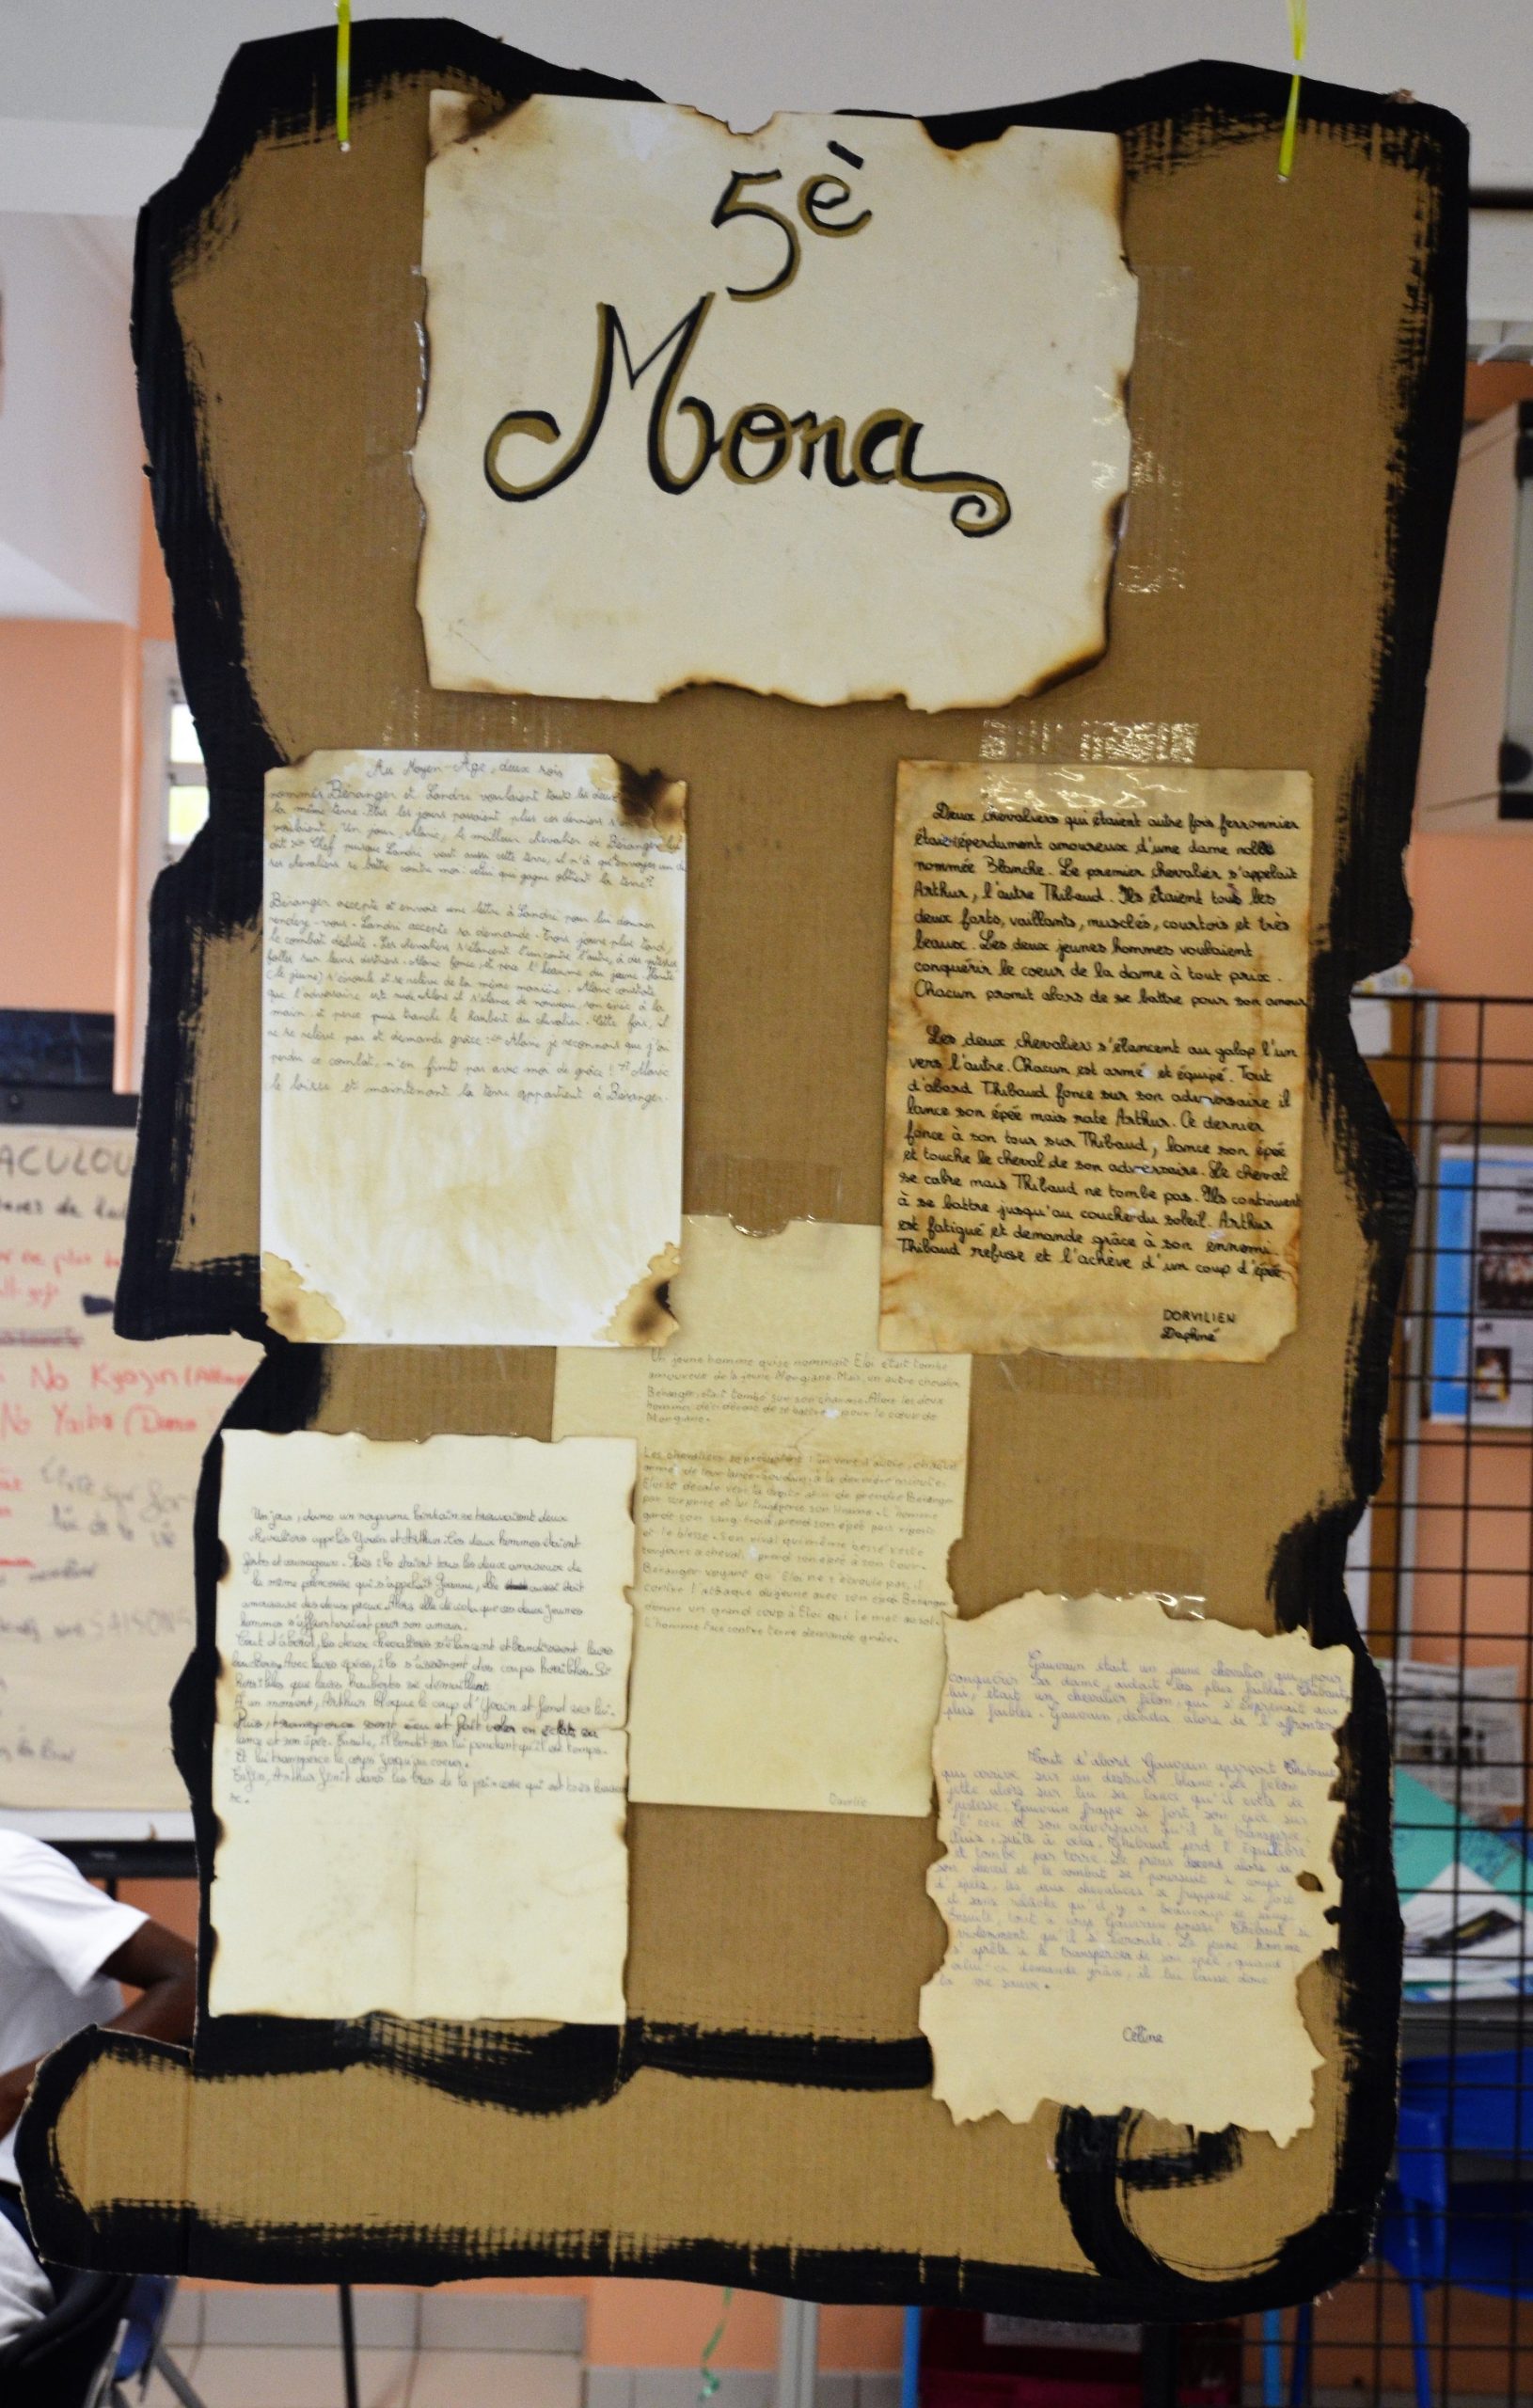 5è
Mona
Au Moyen-Âge, deux rois
nommés Béranger et Landri voulaient tous les deux
la même terre. Plus les jours passaient plus ces derniers
voulaient. Un jour, Alaric, le meilleur chevalier de Béranger
dit Chef puisque Landri veut aussi cette terre, il n'a qu'envoyer un de
ses chevaliers se battre contre moi celui qui gagne obtient la terre
Béranger accepte et envoit une lettre à Landri pour lui donner
rendez-vous. Landri accepte sa demande. Trois jours plus tard,
le combat débute. Les chevaliers s'élancent l'encontre l'autre, à des
sur leurs destriers. Alaric fonce et perce l'heaume du jeune
(le jeune) s'écroule et se relève de la même manière. Alaric constate
que l'adversaire est il s'élance de nouveau, son épée à la
main, et perce puis tranche le haubert du chevalier. Cette fois, il
ne se relève pas et demande grâce : Alaric je reconnais que j'ai
perdu ce combat, n'en finit pas avec moi de grâce ! Alaric
le laisse et maintenant la terre appartient à Béranger.
Deux chevaliers qui étaient autre fois ferronnier
étaient éperdument amoureux d'une dame noble
nommée Blanche. Le premier chevalier s'appelait
Arthur, l'autre Thibaud. Ils étaient tous les
deux forts, vaillants, musclés, courtois et très
beaux. Les deux jeunes hommes voulaient
conquérir le coeur de la dame à tout prix.
Chacun promit alors de se battre pour son amour
Les deux chevaliers s'élancent au galop l'un
vers l'autre. Chacun est armé et équipé. Tout
d'abord Thibaud fonce sur son adversaire il
lance son épée mais rate Arthur. Ce dernier
fonce à son tour sur Thibaud, lance son épée
et touche le cheval de son adversaire. Le cheval
se cabre mais Thibaud ne tombe pas. Ils continuent
à se battre jusqu'au coucher du soleil. Arthur
est fatigué et demande grâce à son ennemi.
Thibaud refuse et l'achève d'un coup d'épée
DORVILIEN
Daphné
Un jeune homme qui se nommait Eloi était tombé
amoureux de la jeune Morgiane. Mais, un autre chevalier
Béranger, était tombé sur son charme. Alors les deux
hommes décidèrent de se battre pour le cœur de
Morgiane.
Les chevaliers se précipitent l'un vers l'autre, chacun
armé de leur lance
Eloi se décale vers la droite afin de prendre Béranger
par surprise et lui
garde son sang froid, prend son épée
et le blesse. Son rival qui même blessé reste
toujours à cheval, prend son épée à son tour.
Béranger voyant qu'Eloi ne s'écroule pas, il
contre l'attaque du jeune avec son épée Béranger
donne un grand coup à Eloi qui le met au sol.
L'homme face contre terre demande grâce.
Un jour, dans un royaume lointain se trouvaient deux
chevaliers appelés Yvain et Arthur. Les deux hommes étaient
forts et courageux. Mais ils étaient tous les deux amoureux de
la même princesse qui s'appelait Jeanne, elle aussi était
amoureuse des deux preux. Alors elle décida que ces deux jeunes
hommes s'affronteraient pour son amour.
Tout d'abord, les deux chevaliers s'élancent et brandissent leurs
Avec leurs épées, ils s'assènent des coups horribles. Si
horribles que leurs hauberts se démaillent.
A un moment, Arthur bloque le coup d'Yvain et fond sur lui.
Puis, transperce son écu et fait voler en éclats sa
lance et son épée. Ensuite, il bondit sur lui pendant qu'il est temps.
Et lui transperce le corps jusqu'au coeur.
Enfin, Arthur finit dans les bras de la princesse qui est très
se.
Gauvain était un jeune chevalier qui, pour
conquérir sa dame, aidait les plus faibles. Thibaut,
lui, était un chevalier félon, qui s'en prenait aux
plus faibles. Gauvain, décida alors de l'affronter
Tout d'abord Gauvain aperçoit Thibaut
qui arrive sur un destrier blanc. Le félon
jette alors sur lui sa lance qu'il évite de
justesse. Gauvain frappe si fort son épée sur
l'écu de son adversaire qu'il le transperce.
Puis, suite à cela, Thibaut perd l'équilibre
et tombe par terre. Le preux descend alors de
son cheval et le combat se poursuit à coups
d'épées, les deux chevaliers se frappent si fort
et sans relâche qu'il y a beaucoup de sang.
Ensuite, tout à coup Gauvain pousse Thibaut si
violemment qu'il s'écroule. Le jeune homme
s'apprête à le transpercer de son épée, quand
celui-ci demande grâce, il lui laisse donc
la vie sauve.
Céline
No Kyojin
No Yaiba
SAISONS